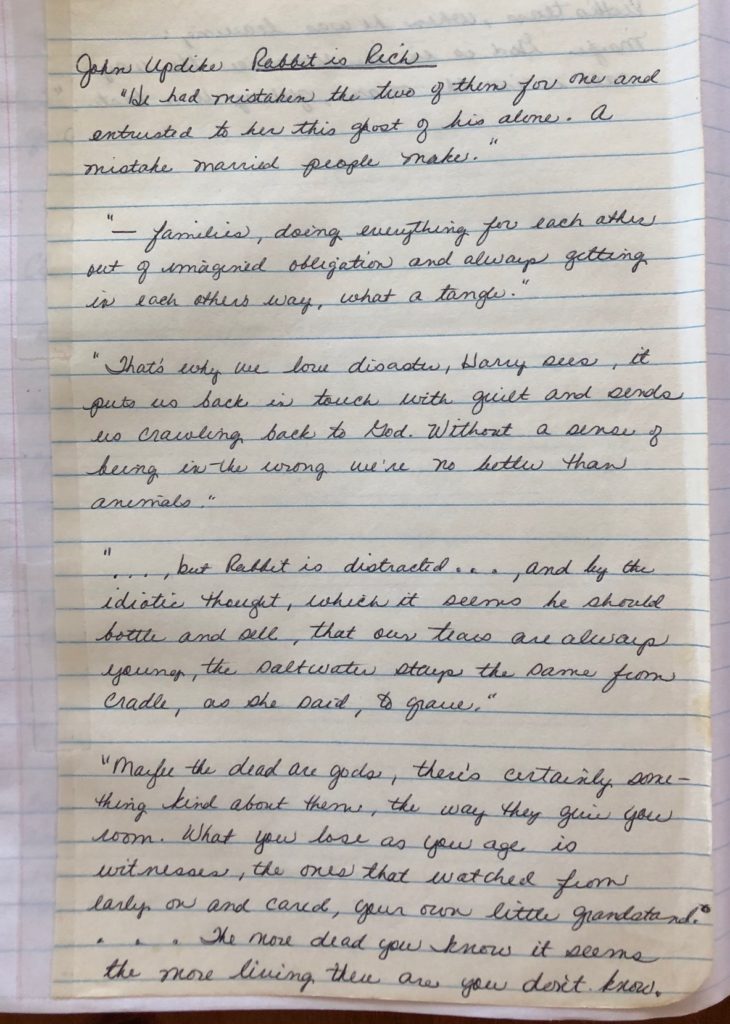 John Updike Rabbit is Rich
"He had mistaken the two of them for one and
entrusted to her this ghost of his alone. A
mistake married people make."
"— families, doing everything for each other
out of imagined obligation and always getting
in each others way, what a tangle."
"That's why we love disaster, Harry sees, it
puts us back in touch with guilt and sends
us crawling back to God. Without a sense of
being in the wrong we're no better than
animals."
"...., but Rabbit is distracted...., and by the
idiotic thought, which it seems he should
bottle and sell, that our tears are always
young, the saltwater stays the same from
cradle, as she said, to grave."
"Maybe the dead are gods, there's certainly some-
thing kind about them, the way they give you
room. What you lose as you age is
witnesses, the ones that watched from
early on and cared, your own little grandstand."
. . . The more dead you know it seems
the more living there are you don't know.